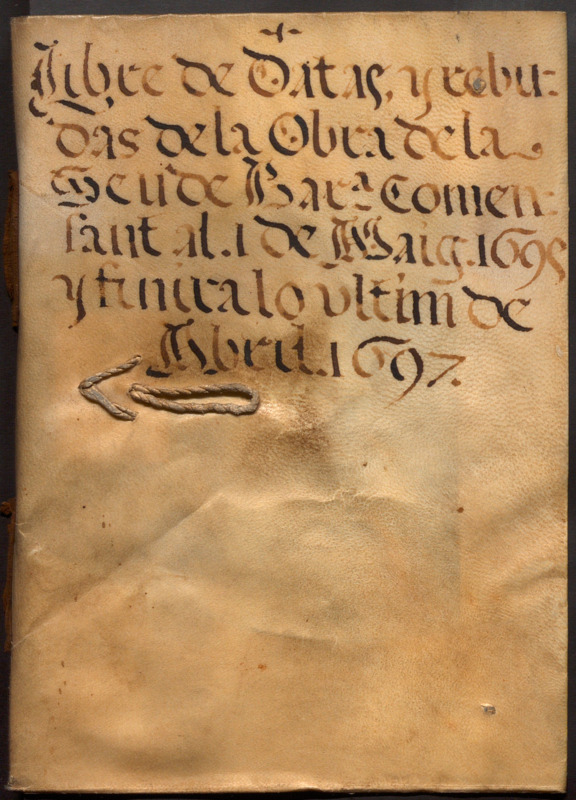 ✝
Llibre de Datas, y rebu-
das de la Obra de la
Seu de Bar.ª Comen-
sant al .1 de Maig .1695
y finira lo ultim de
Abril .1697.